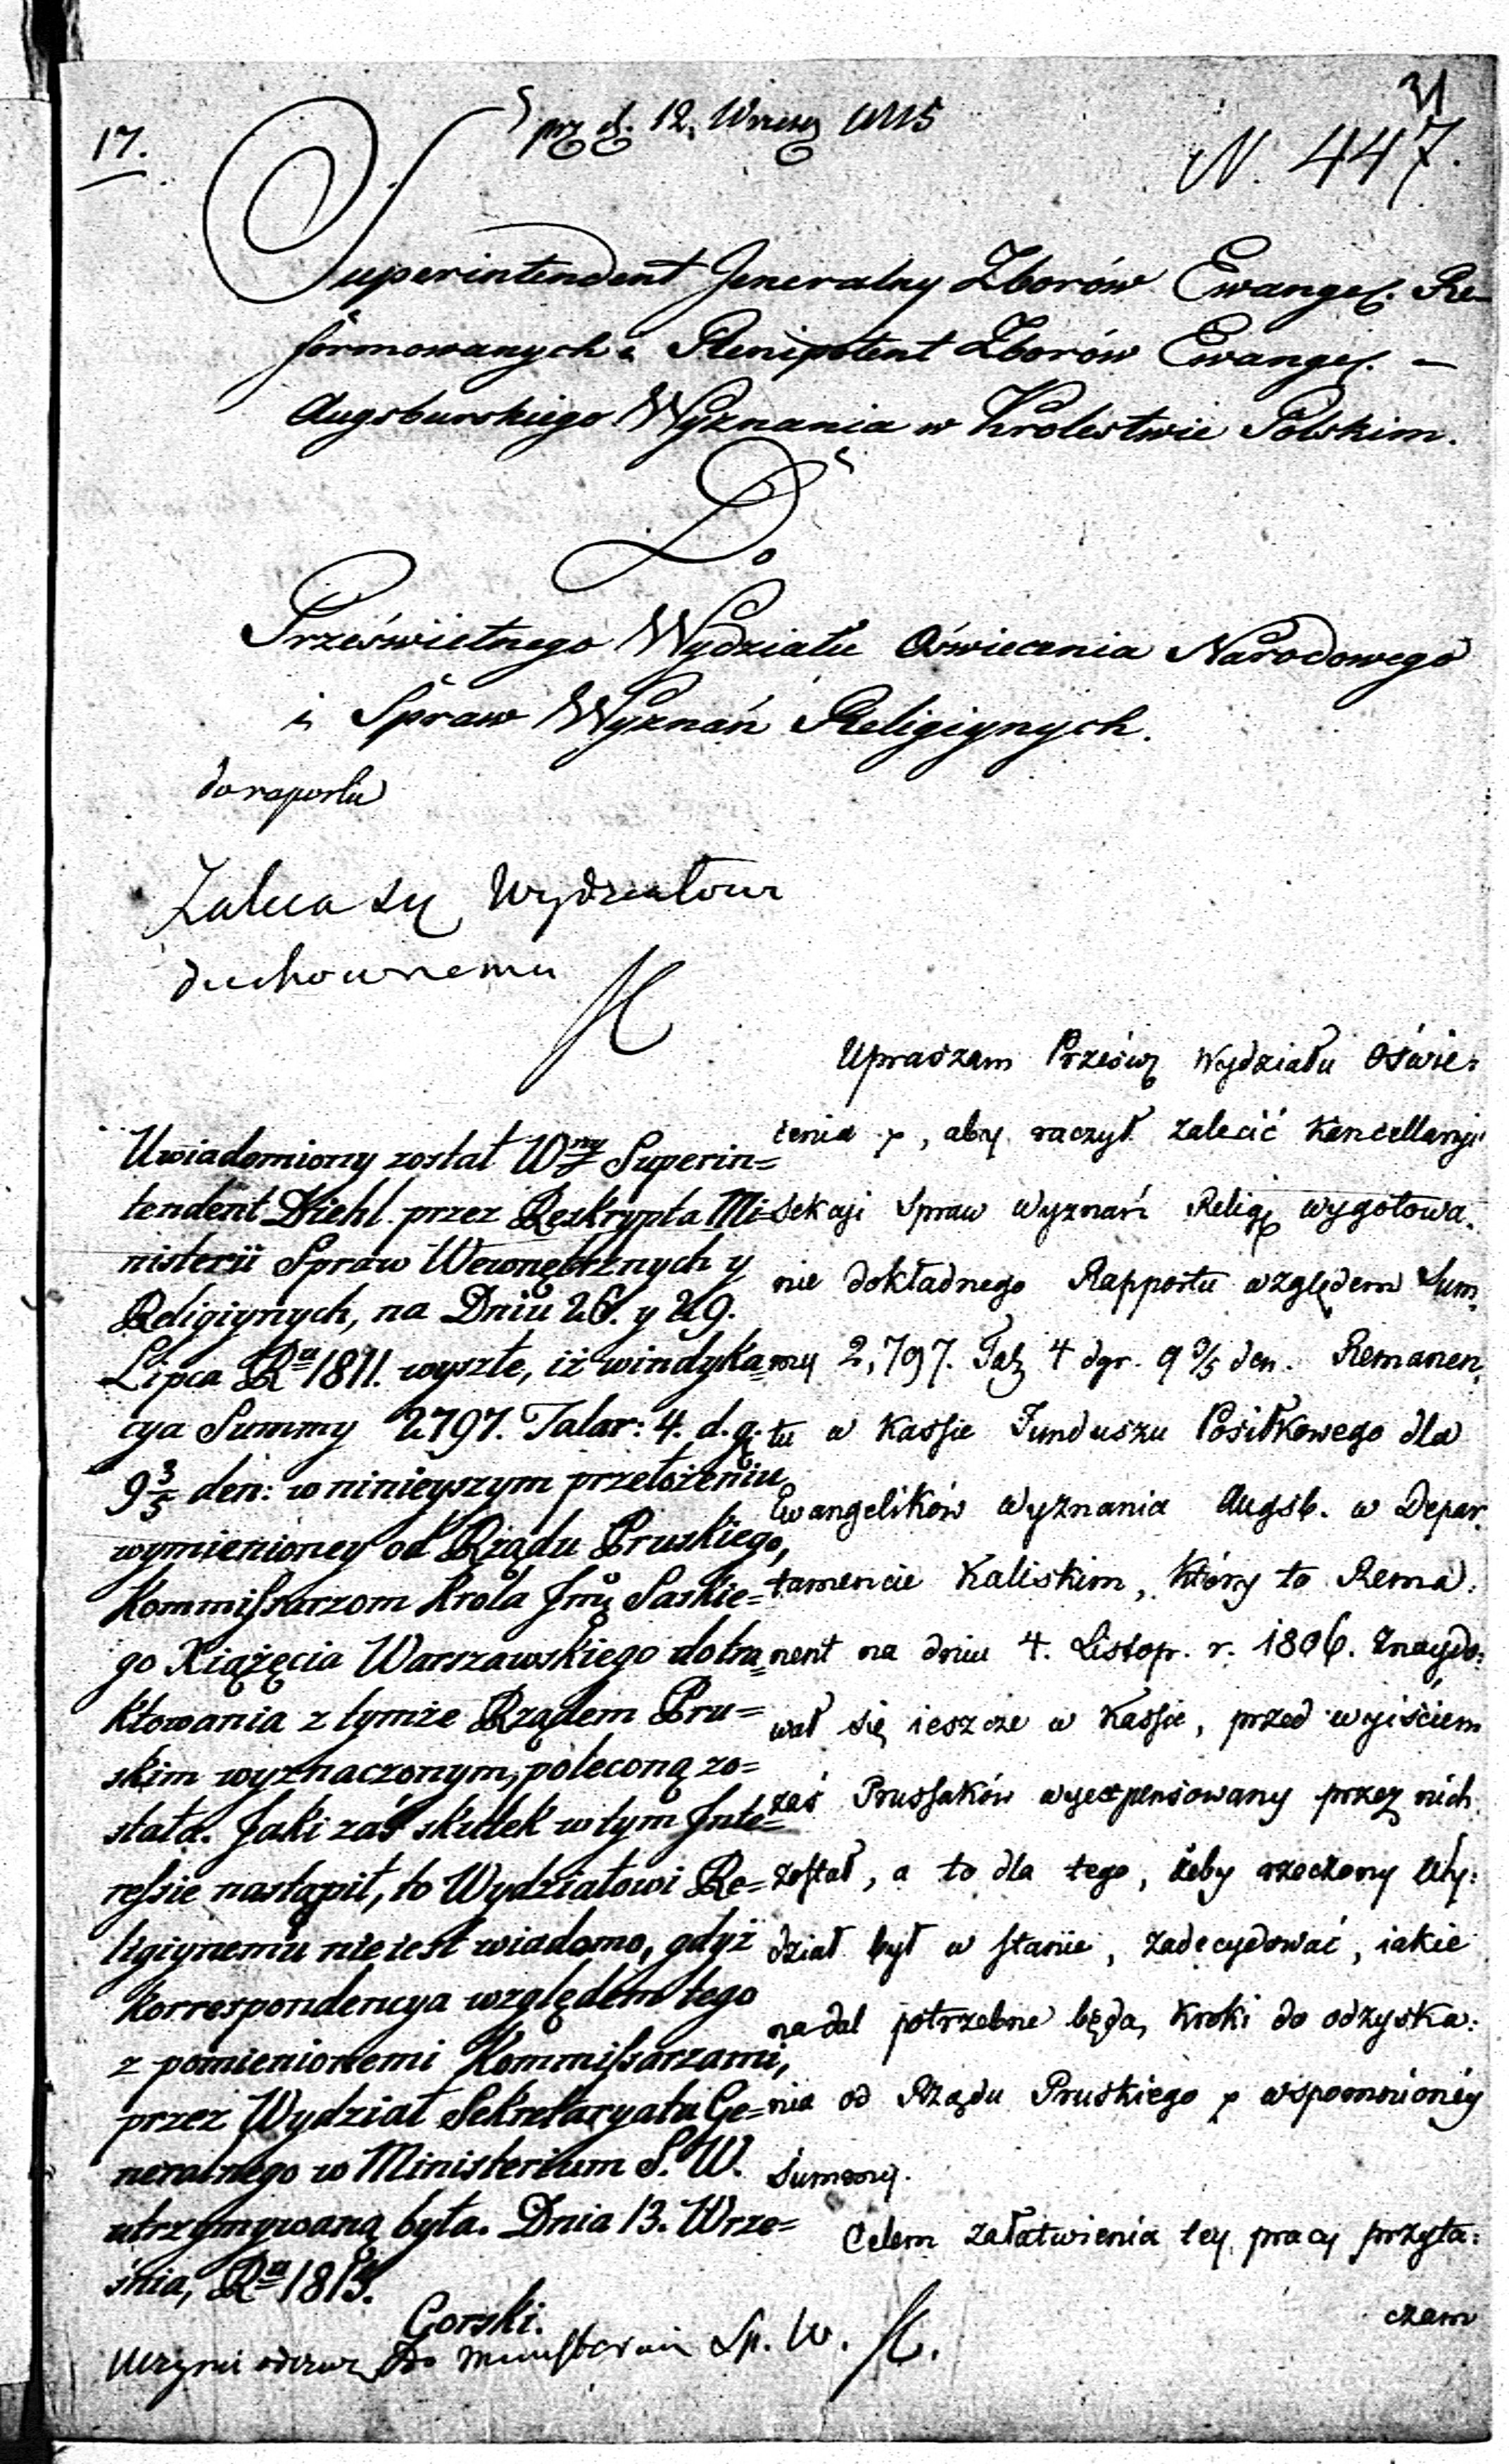 31
17.
prz d. 12. Wrzesz 1815
N. 447.
Superintendent Jeneralny Zborów Ewangel. Re-
formowanych i Plenipotent Zborów Ewangel. -
Augsburskiego Wyznania w Krolestwie Polskim.
Do
Prześwietnego Wydziału Oświecenia Narodowego
i Spraw Wyznań Religiynych.
do raportu
Zaleca się Wydziałowi
duchownemu
Upraszam Prześw. Wydziału Oświe:
cenia p, aby raczył zalecić Kancellaryi
Sekcyi Spraw Wyznań Relig. wygotowa:
nie dokładnego Rapportu względem Sum:
my 2,797. Tal. 4 dgr. 9 3/5 den. Remanen:
tu w Kassie Funduszu Posiłkowego dla
Ewangelików Wyznania Augsb. w Depar:
tamencie Kaliskim, który to Rema:
nent na dniu 4. Listop. r. 1806. znaydo:
wał się ieszcze w Kassie, przed wyiściem
zaś Prussaków wyexpensowany przez nich
został, a to dla tego, żeby rzeczony Wy:
dział był w stanie, zadecydować, iakie
nadal potrzebne będą kroki do odzyska:
nia od Rządu Pruskiego p wspomnionéy
Summy.
Celem załatwienia tey pracy przyta:
czam
Uwiadomiony został Wny Superin=
tendent Diehl przez Reskrypta Mi=
nisterii Spraw Wewnętrznych y
Religiynych, na Dniu 26. y 29.
Lipca Ra 1811. wyszłe, iż windyka=
cya Summy 2797. Talar: 4. d. g.
9 3/5 den: w ninieyszym przełożeniu
wymienioney od Rządu Pruskiego,
Kommissarzom Krola Jmć Saskie=
go Xiążęcia Warszawskiego do tra=
ktowania z tymże Rządem Pru=
skim wyznaczonym, poleconą zo=
stała. Jaki zaś skutek w tym Inte=
ressie nastąpił, to Wydziałowi Re=
ligiynemu nie iest wiadomo, gdyż
korrespondencya względem tego
z pomienionemi Kommissarzami,
przez Wydział Sekretaryatu Ge=
neralnego w Ministerium S. W.
utrzymywaną była. Dnia 13. Wrze=
śnia, Ra 1815.
Gorski.
Uczynić odezwę do Ministerium Sp. W.